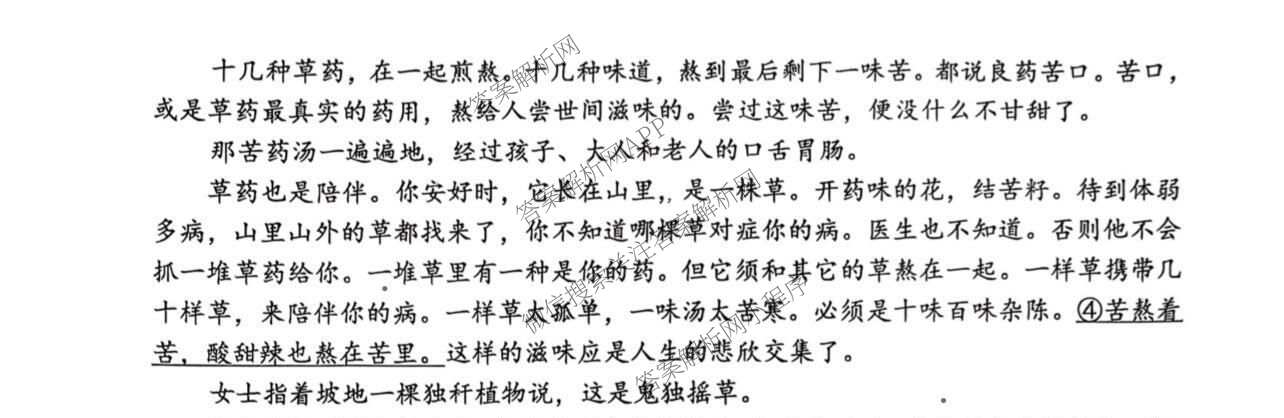 十几种草药，在一起煎熬。十几种味道，熬到最后剩下一味苦。都说良药苦口。苦口，
或是草药最真实的药用，熬给人尝世间滋味的。尝过这味苦，便没什么不甘甜了。
那苦药汤一遍遍地，经过孩子、大人和老人的口舌胃肠。
草药也是陪伴。你安好时，它长在山里，是一株草。开药味的花，结苦籽。待到体弱
多病，山里山外的草都找来了，你不知道哪棵草对症你的病。医生也不知道。否则他不会
抓一堆草药给你。一堆草里有一种是你的药。但它须和其它的草熬在一起。一样草携带几
十样草，来陪伴你的病。一样草太孤单，一味汤太苦寒。必须是十味百味杂陈。④苦熬着
苦，酸甜辣也熬在苦里。这样的滋味应是人生的悲欣交集了。
女士指着坡地一棵独秆植物说，这是鬼独摇草。
答案解析网
答案解析网APP
微信搜索关注答案解析网
答案解析网小程序